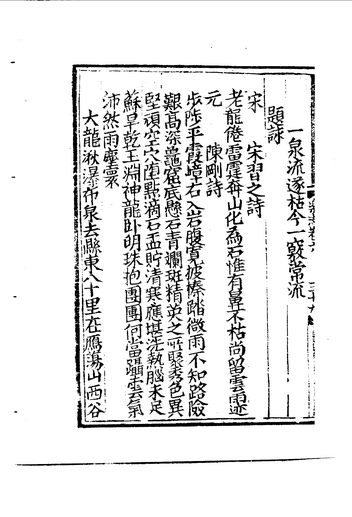 一泉流遂枯今一竅常流
題詠
宋　宋習之詩
老龍倦雷霆奔山化為石惟有鼻不枯尚留雲雨迹
元　陳剛詩
步陟平霞嶂右入岩腹寬披榛踏微雨不知路險
艱高深龜窟底懸石青斕斑精英之所聚秀色異
堅頑空穴囱點滴石盂貯清寒應堪洗熱腦未足
蘇旱乾玉淵神龍卧明珠抱團團何當躡雲氣
沛然雨塵寰
大龍湫瀑布泉去縣東八十里在鴈蕩山西谷